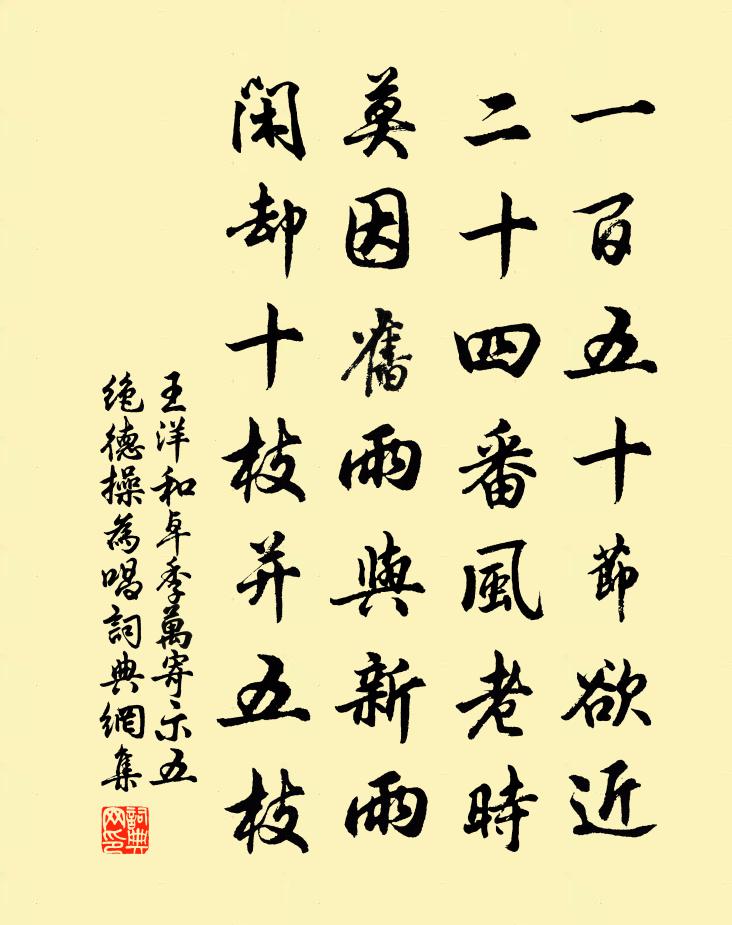 一百五十節欲近
二十四番風老時
莫因舊雨與新雨
閑却十枝并五枝
王洋和卓季萬寄示五
絶德操為唱詞典網集
詞典网印